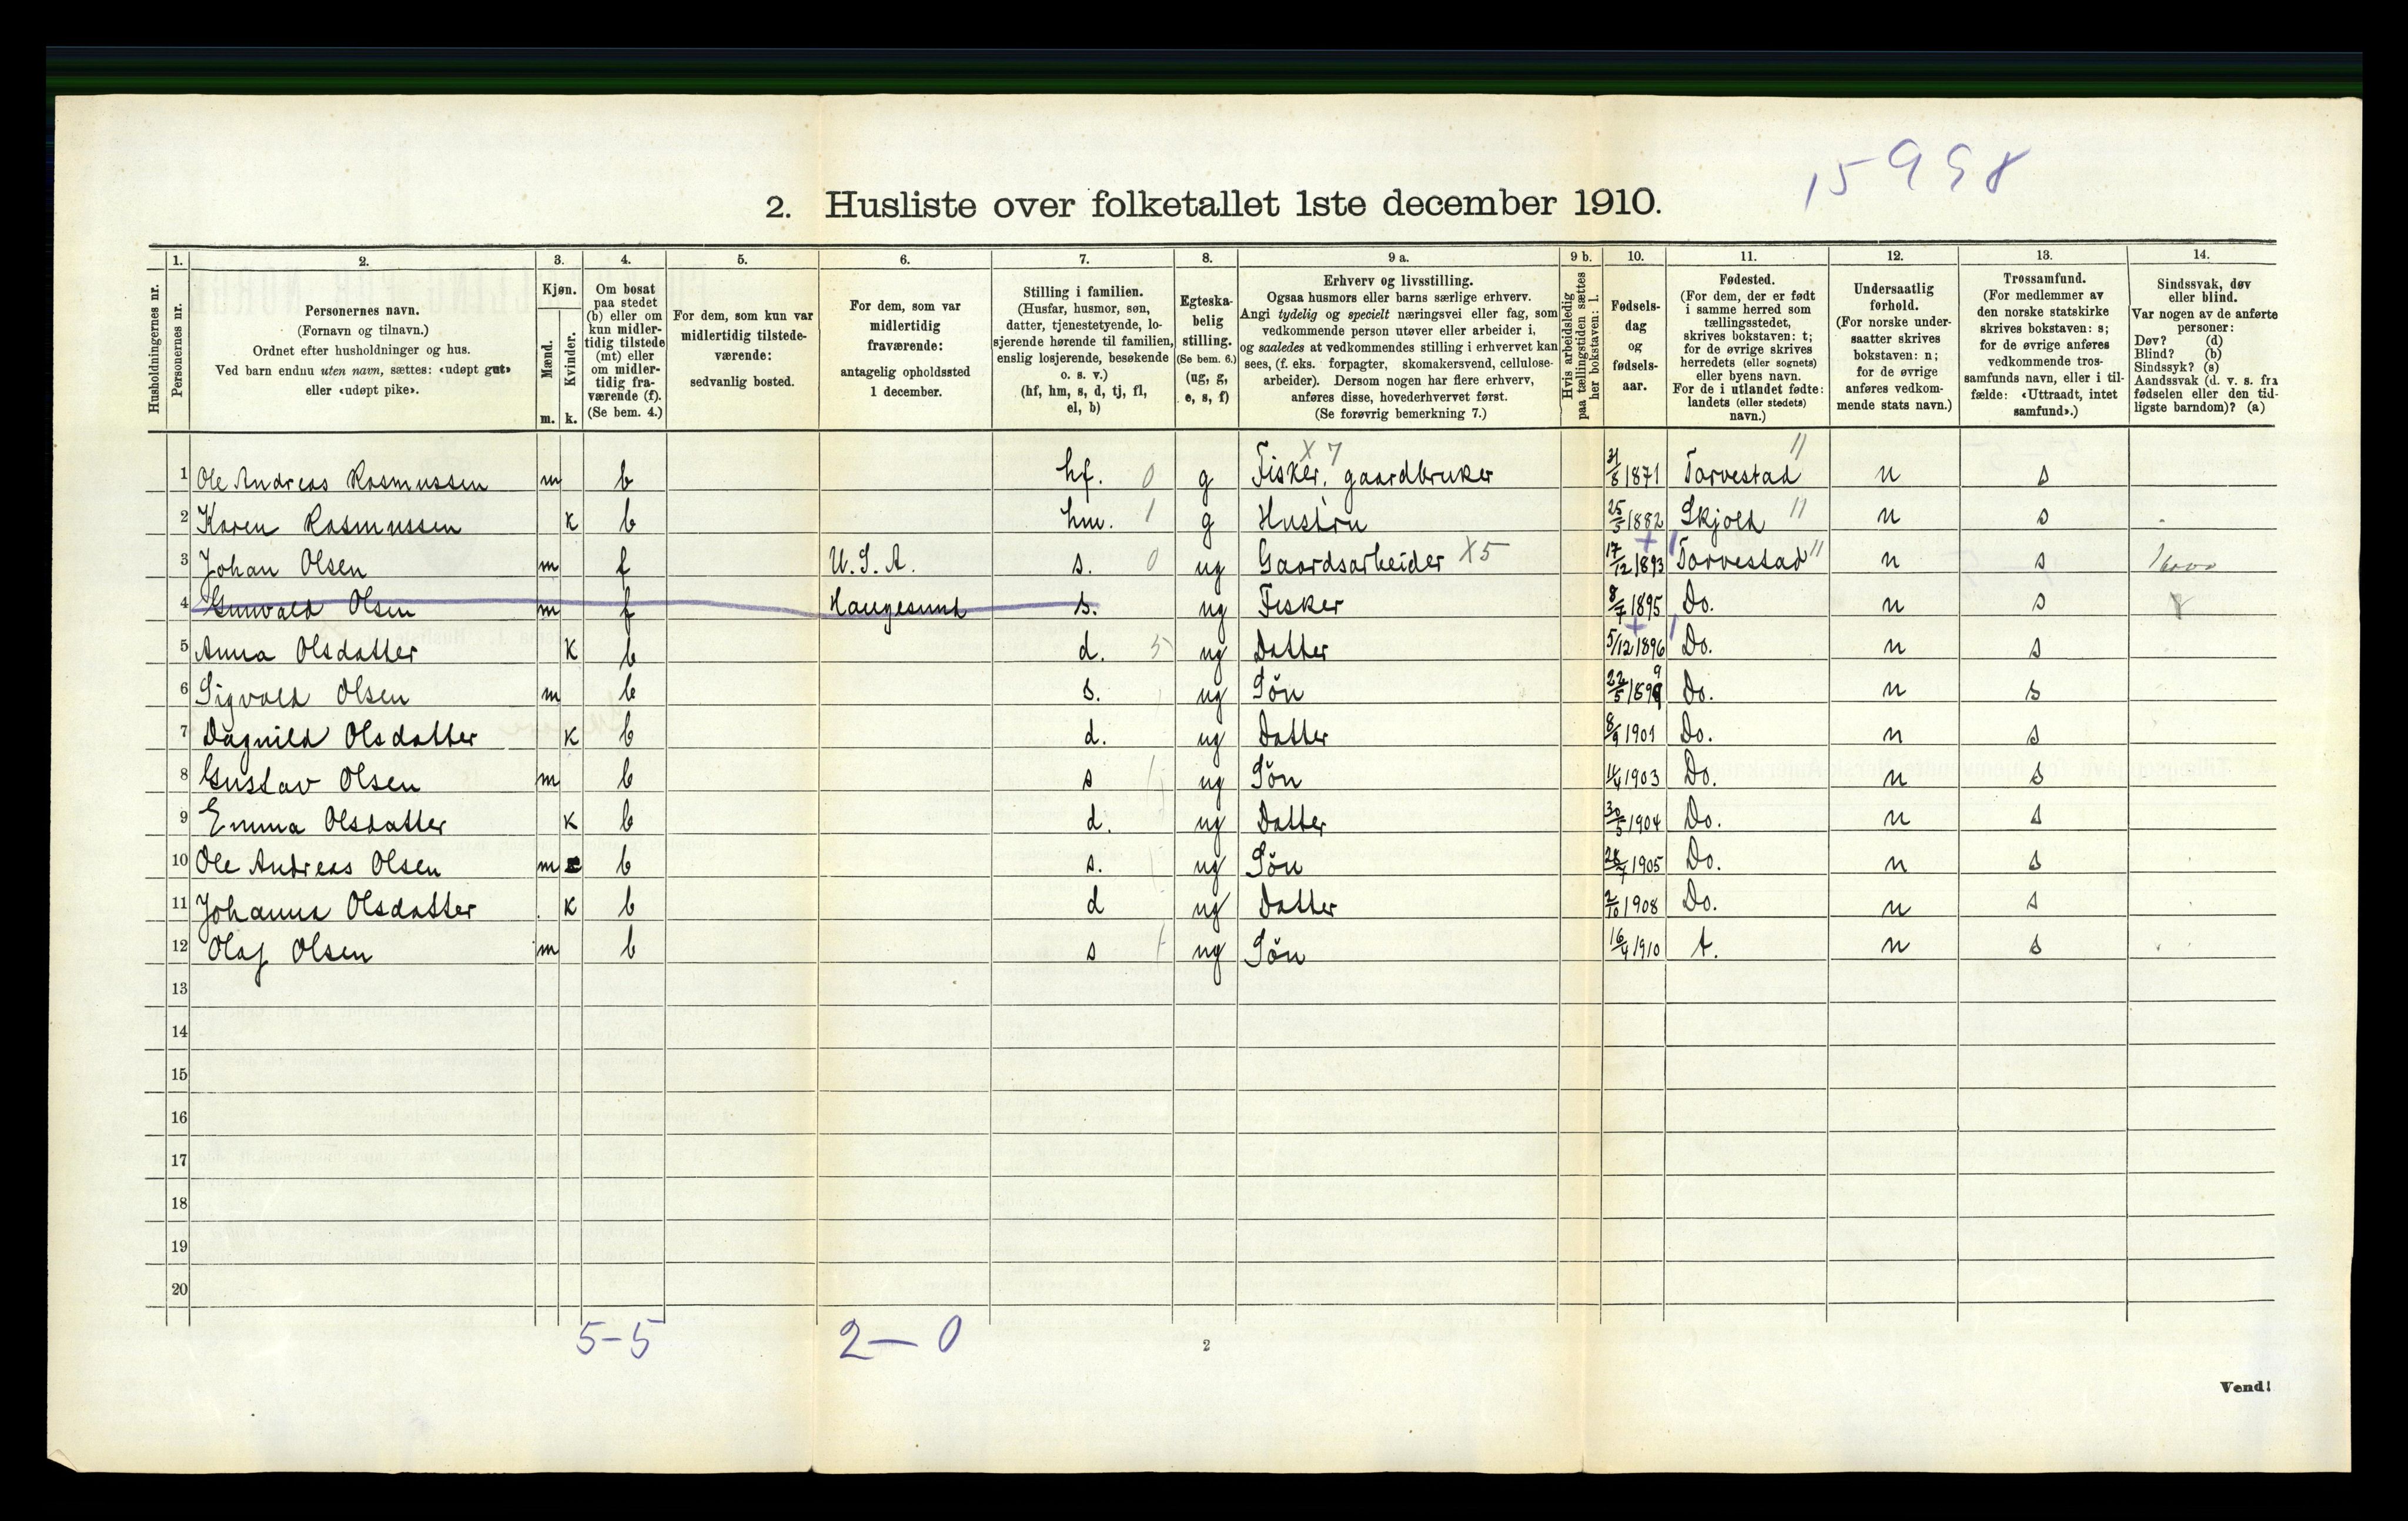 15998
2. Husliste over folketallet 1ste december 1910.
Husholdningernes nr.
1.
Personernes nr.
2.
Personernes navn.
(Fornavn og tilnavn.)
Ordnet efter husholdninger og hus.
Ved barn endnu uten navn, sættes: «udøpt gut»
eller «udøpt pike».
3.
Kjøn.
Mænd.
Kvinder.
m. k.
4.
Om bosat
paa stedet
(b) eller om
kun midler-
tidig tilstede
(mt) eller
om midler-
tidig fra-
værende (f).
(Se bem. 4.)
5.
For dem, som kun var
midlertidig tilstede-
værende:
sedvanlig bosted.
6.
For dem, som var
midlertidig
fraværende:
antagelig opholdssted
1 december.
7.
Stilling i familien.
(Husfar, husmor, søn,
datter, tjenestetyende, lo-
sjerende hørende til familien,
enslig losjerende, besøkende
o. s. v.)
(hf, hm, s, d, tj, fl,
el, b)
8.
Egteska-
belig
stilling.
(Se bem. 6.)
(ug, g,
e, s, f)
9 a.
Erhverv og livsstilling.
Ogsaa husmors eller barns særlige erhverv.
Angi tydelig og specielt næringsvei eller fag, som
vedkommende person utøver eller arbeider i,
og saaledes at vedkommendes stilling i erhvervet kan
sees, (f. eks. forpagter, skomakersvend, cellulose-
arbeider). Dersom nogen har flere erhverv,
anføres disse, hovederhvervet først.
(Se forøvrig bemerkning 7.)
9 b.
Hvis arbeidsledig
paa tællingstiden sættes
her bokstaven: l.
10.
Fødsels-
dag
og
fødsels-
aar.
11.
Fødested.
(For dem, der er født
i samme herred som
tællingsstedet,
skrives bokstaven: t;
for de øvrige skrives
herredets (eller sognets)
eller byens navn.
For de i utlandet fødte:
landets (eller stedets)
navn.)
12.
Undersaatlig
forhold.
(For norske under-
saatter skrives
bokstaven: n;
for de øvrige
anføres vedkom-
mende stats navn.)
13.
Trossamfund.
(For medlemmer av
den norske statskirke
skrives bokstaven: s;
for de øvrige anføres
vedkommende tros-
samfunds navn, eller i til-
fælde: «Uttraadt, intet
samfund».)
14.
Sindssvak, døv
eller blind.
Var nogen av de anførte
personer:
Døv? (d)
Blind? (b)
Sindssyk? (s)
Aandssvak (d. v. s. fra
fødselen eller den tid-
ligste barndom)? (a)
X 7 11
1 Ole Andreas Rasmussen m b hf. 0 g Fisker, gaardbruker 31/8 1871 Torvestad n s
2 Karen Rasmussen k b hm. 1 g Hustru 25/5 1882 Skjold 11 n s
3 Johan Olsen m f U.S.A. s. 0 ug Gaardsarbeider X5 17/12 1893 Torvestad 11 n s
4 Gunvald Olsen m f Haugesund s. ug Fisker 8/7 1895 Do. n s
5 Anna Olsdatter k b d. 5 ug Datter 5/12 1896 Do. n s
6 Sigvald Olsen m b s. ug Søn 22/5 1899 Do. n s
7 Dagnild Olsdatter k b d. ug Datter 8/9 1901 Do. n s
8 Gustav Olsen m b s ug Søn 1903 Do. n s
9 Emma Olsdatter k b d. ug Datter 30/5 1904 Do. n s
10 Ole Andreas Olsen m b s. ug Søn 1905 Do. n s
11 Johanna Olsdatter k b d ug Datter 2/10 1908 Do. n s
12 Olaf Olsen m b s ug Søn 16/4 1910 t. n s
13
14
15
16
17
18
19
20
5-5 2-0
2
Vend!